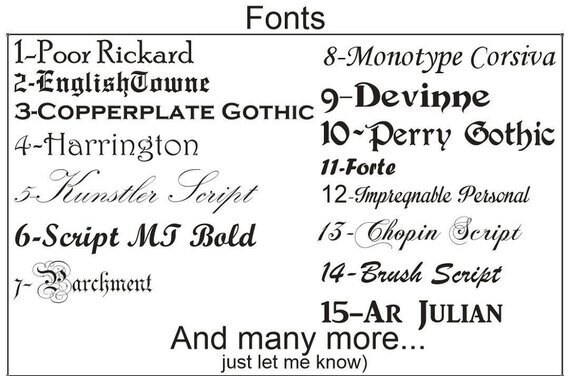 Fonts
1-Poor Rickard
2-EnglishTowne
3-Copperplate Gothic
4-Harrington
5-Kunstler Script
6-Script MT Bold
7-Parchment
8-Monotype Corsiva
9-Devinne
10-Perry Gothic
11-Forte
12-Impregnable Personal
13-Chopin Script
14-Brush Script
15-AR JULIAN
And many more...
just let me know)